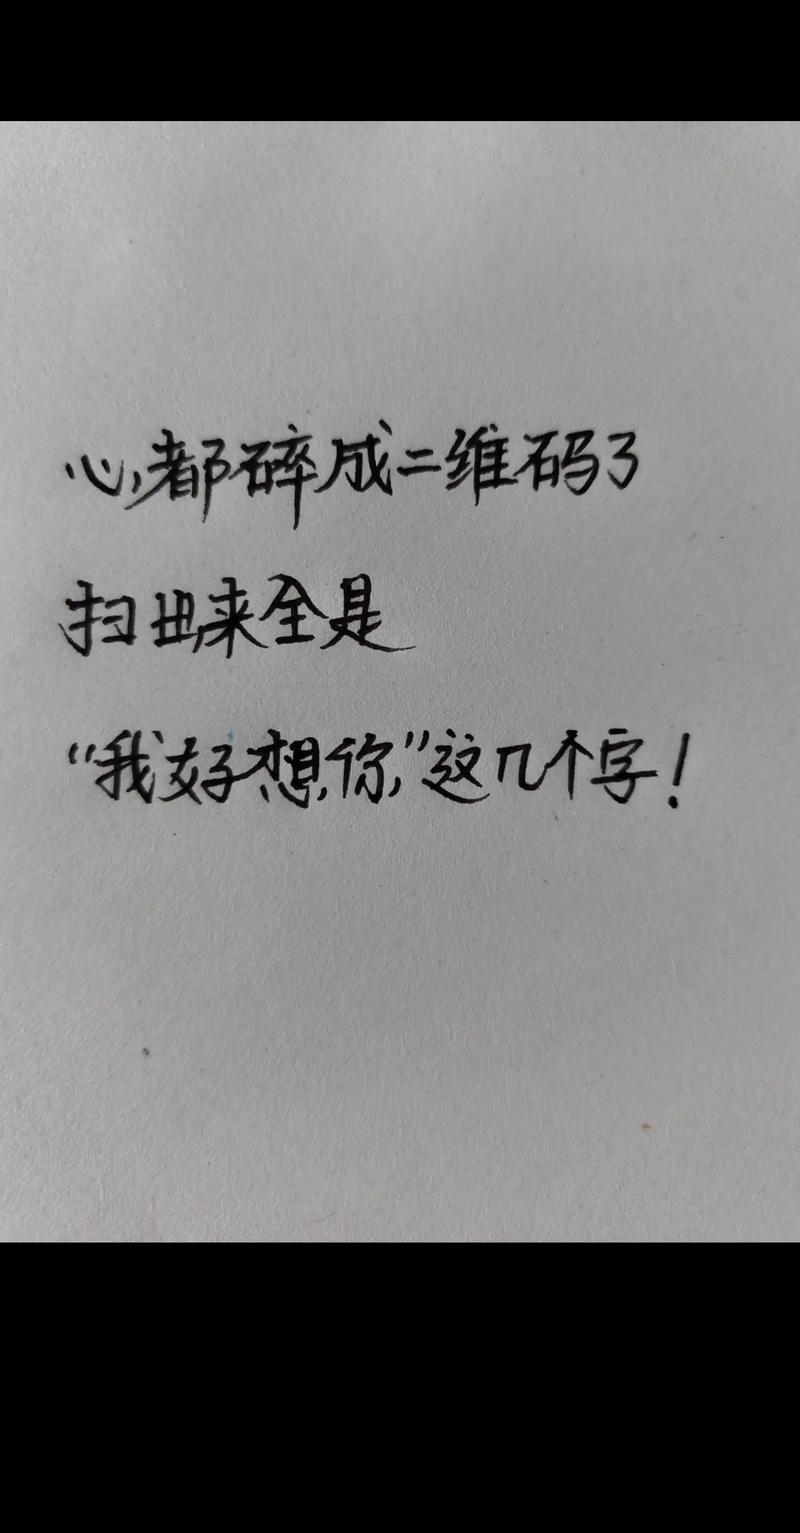 心都碎成二维码了
扫出来全是
“我好想你”这几个字！